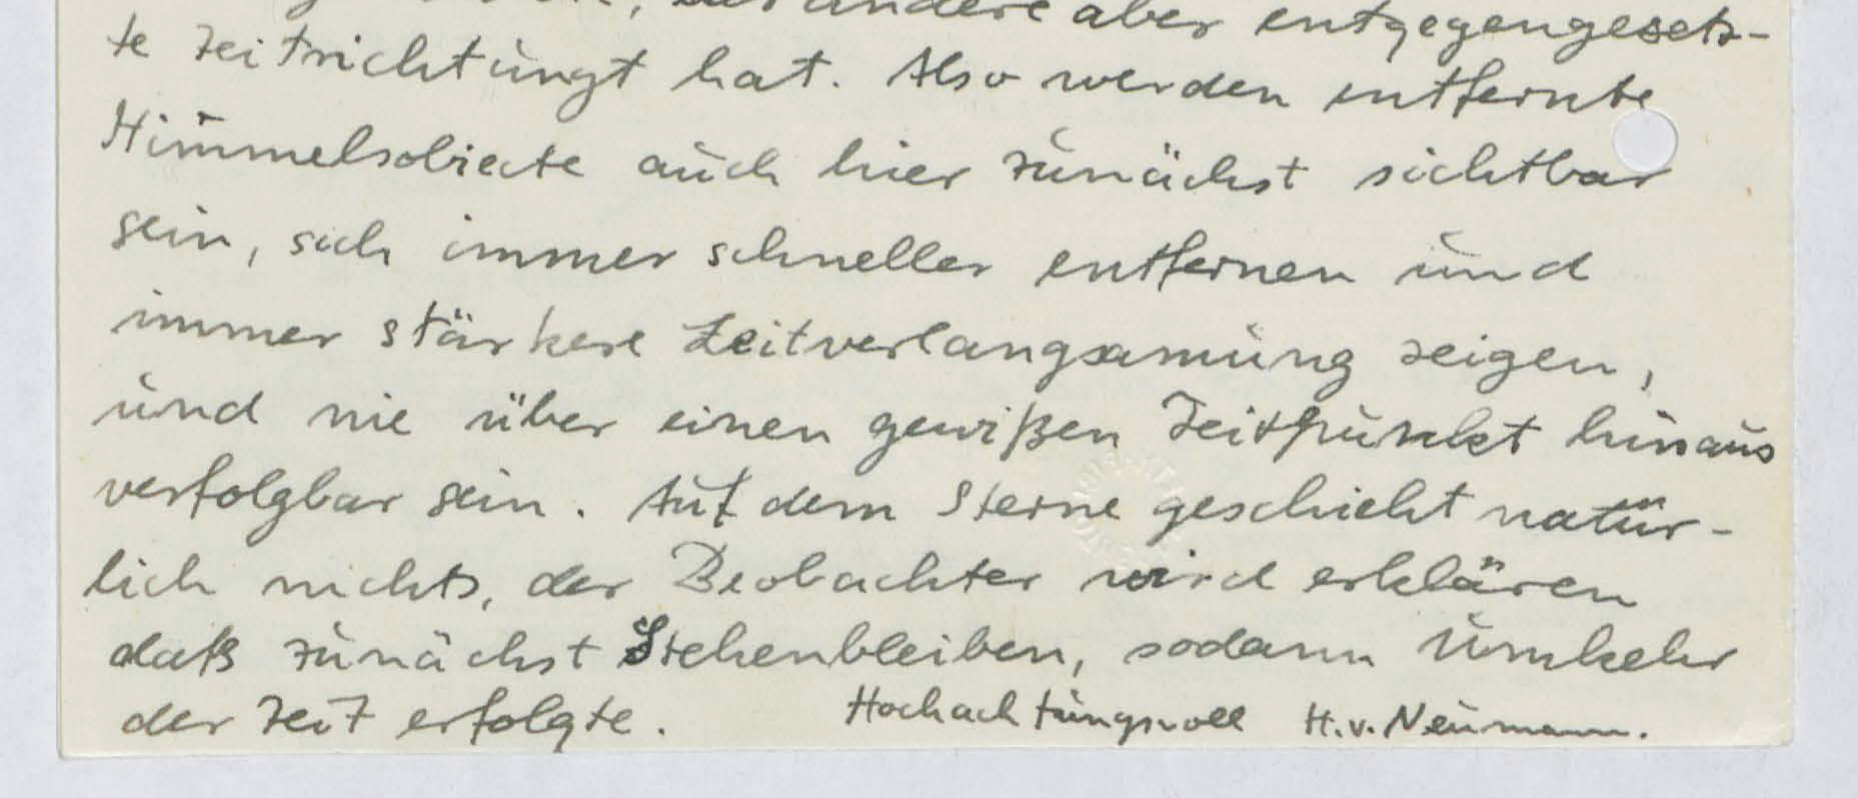 andere aber entgegengesetz-
te Zeitrichtungt hat. Also werden entfernte
Himmelsobiecte auch hier zunächst sichtbar
sein, sich immer schneller entfernen und
immer stärkere Zeitverlangsamung zeigen,
und nie über einen gewißen Zeitpunkt hinaus
verfolgbar sein. Auf dem Sterne geschieht natür-
lich nichts, der Beobachter wird erklären
daß zunächst Stehenbleiben, sodann Umkehr
der Zeit erfolgte. Hochachtungsvoll H.v. Neumann.